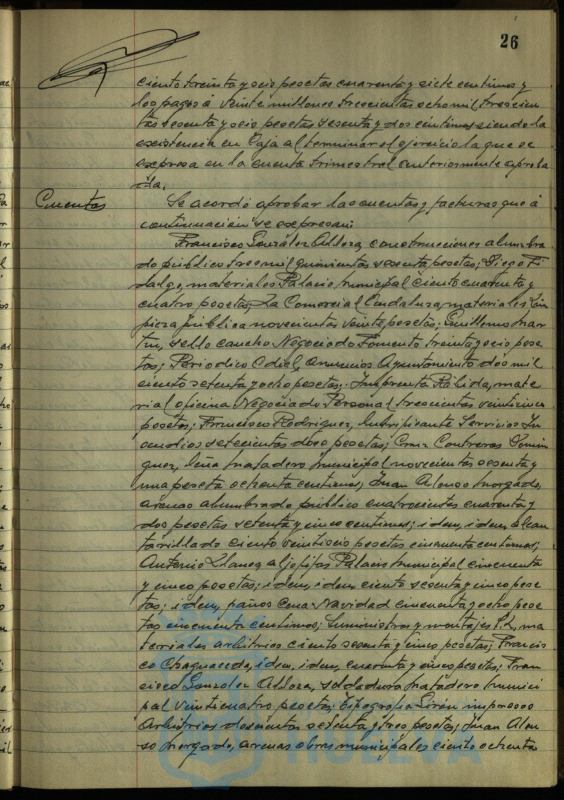 26
ciento treinta y seis pesetas cuarenta y siete centimos y
los pagos á veinte millones trescientas ocho mil trescien
tas sesenta y seis pesetas sesenta y dos centimos siendo la
existencia en Caja al terminar el ejercicio la que se
expresa en la cuenta trimestral anteriormente aproba
da.
Cuentas
Se acordó aprobar las cuentas y facturas que á
continuación se expresan:
Francisco González Aldora, construcciones alumbra
do público tres mil quinientas sesenta pesetas; Diego Fi
dalgo, materiales Palacio municipal ciento cuarenta y
cuatro pesetas; La Comercial Andaluza, materiales Lim
pieza pública novecientas veinte pesetas; Guillermo Mar
tin, sello caucho Negociado Fomento treinta y seis pese
tas; Periodico Odiel, anuncios Ayuntamiento dos mil
ciento setenta y ocho pesetas; Imprenta Pálida, mate
rial oficina Negociado Personal trescientas veinticinco
pesetas; Francisco Rodriguez, lubrificante Servicios In
cendios setecientas doce pesetas; Cruz Contreras Domin
guez, leña matadero municipal novecientas sesenta y
una peseta ochenta centimos; Juan Alonso Morgado,
arenas alumbrado público cuatrocientas cuarenta y
dos pesetas setenta y cinco centimos; idem, idem alcan
tarillado ciento veintiseis pesetas cincuenta centimos;
Antonio Llanes, aljofifas Palacio municipal cincuenta
y cinco pesetas; idem, idem ciento sesenta y cinco pese
tas; idem, paños Cena Navidad cincuenta y ocho pese
tas cincuenta centimos; Suministros y montajes ma
teriales arbitrios ciento sesenta y cinco pesetas; Francis
co idem, idem, cuarenta y cinco pesetas; Fran
cisco González Aldora, soldadura matadero munici
pal veinticuatro pesetas; Tipografia Girón impresos
Arbitrios doscientas setenta y tres pesetas; Juan Alon
so Morgado, arenas obras municipales ciento ochenta
HUELVA